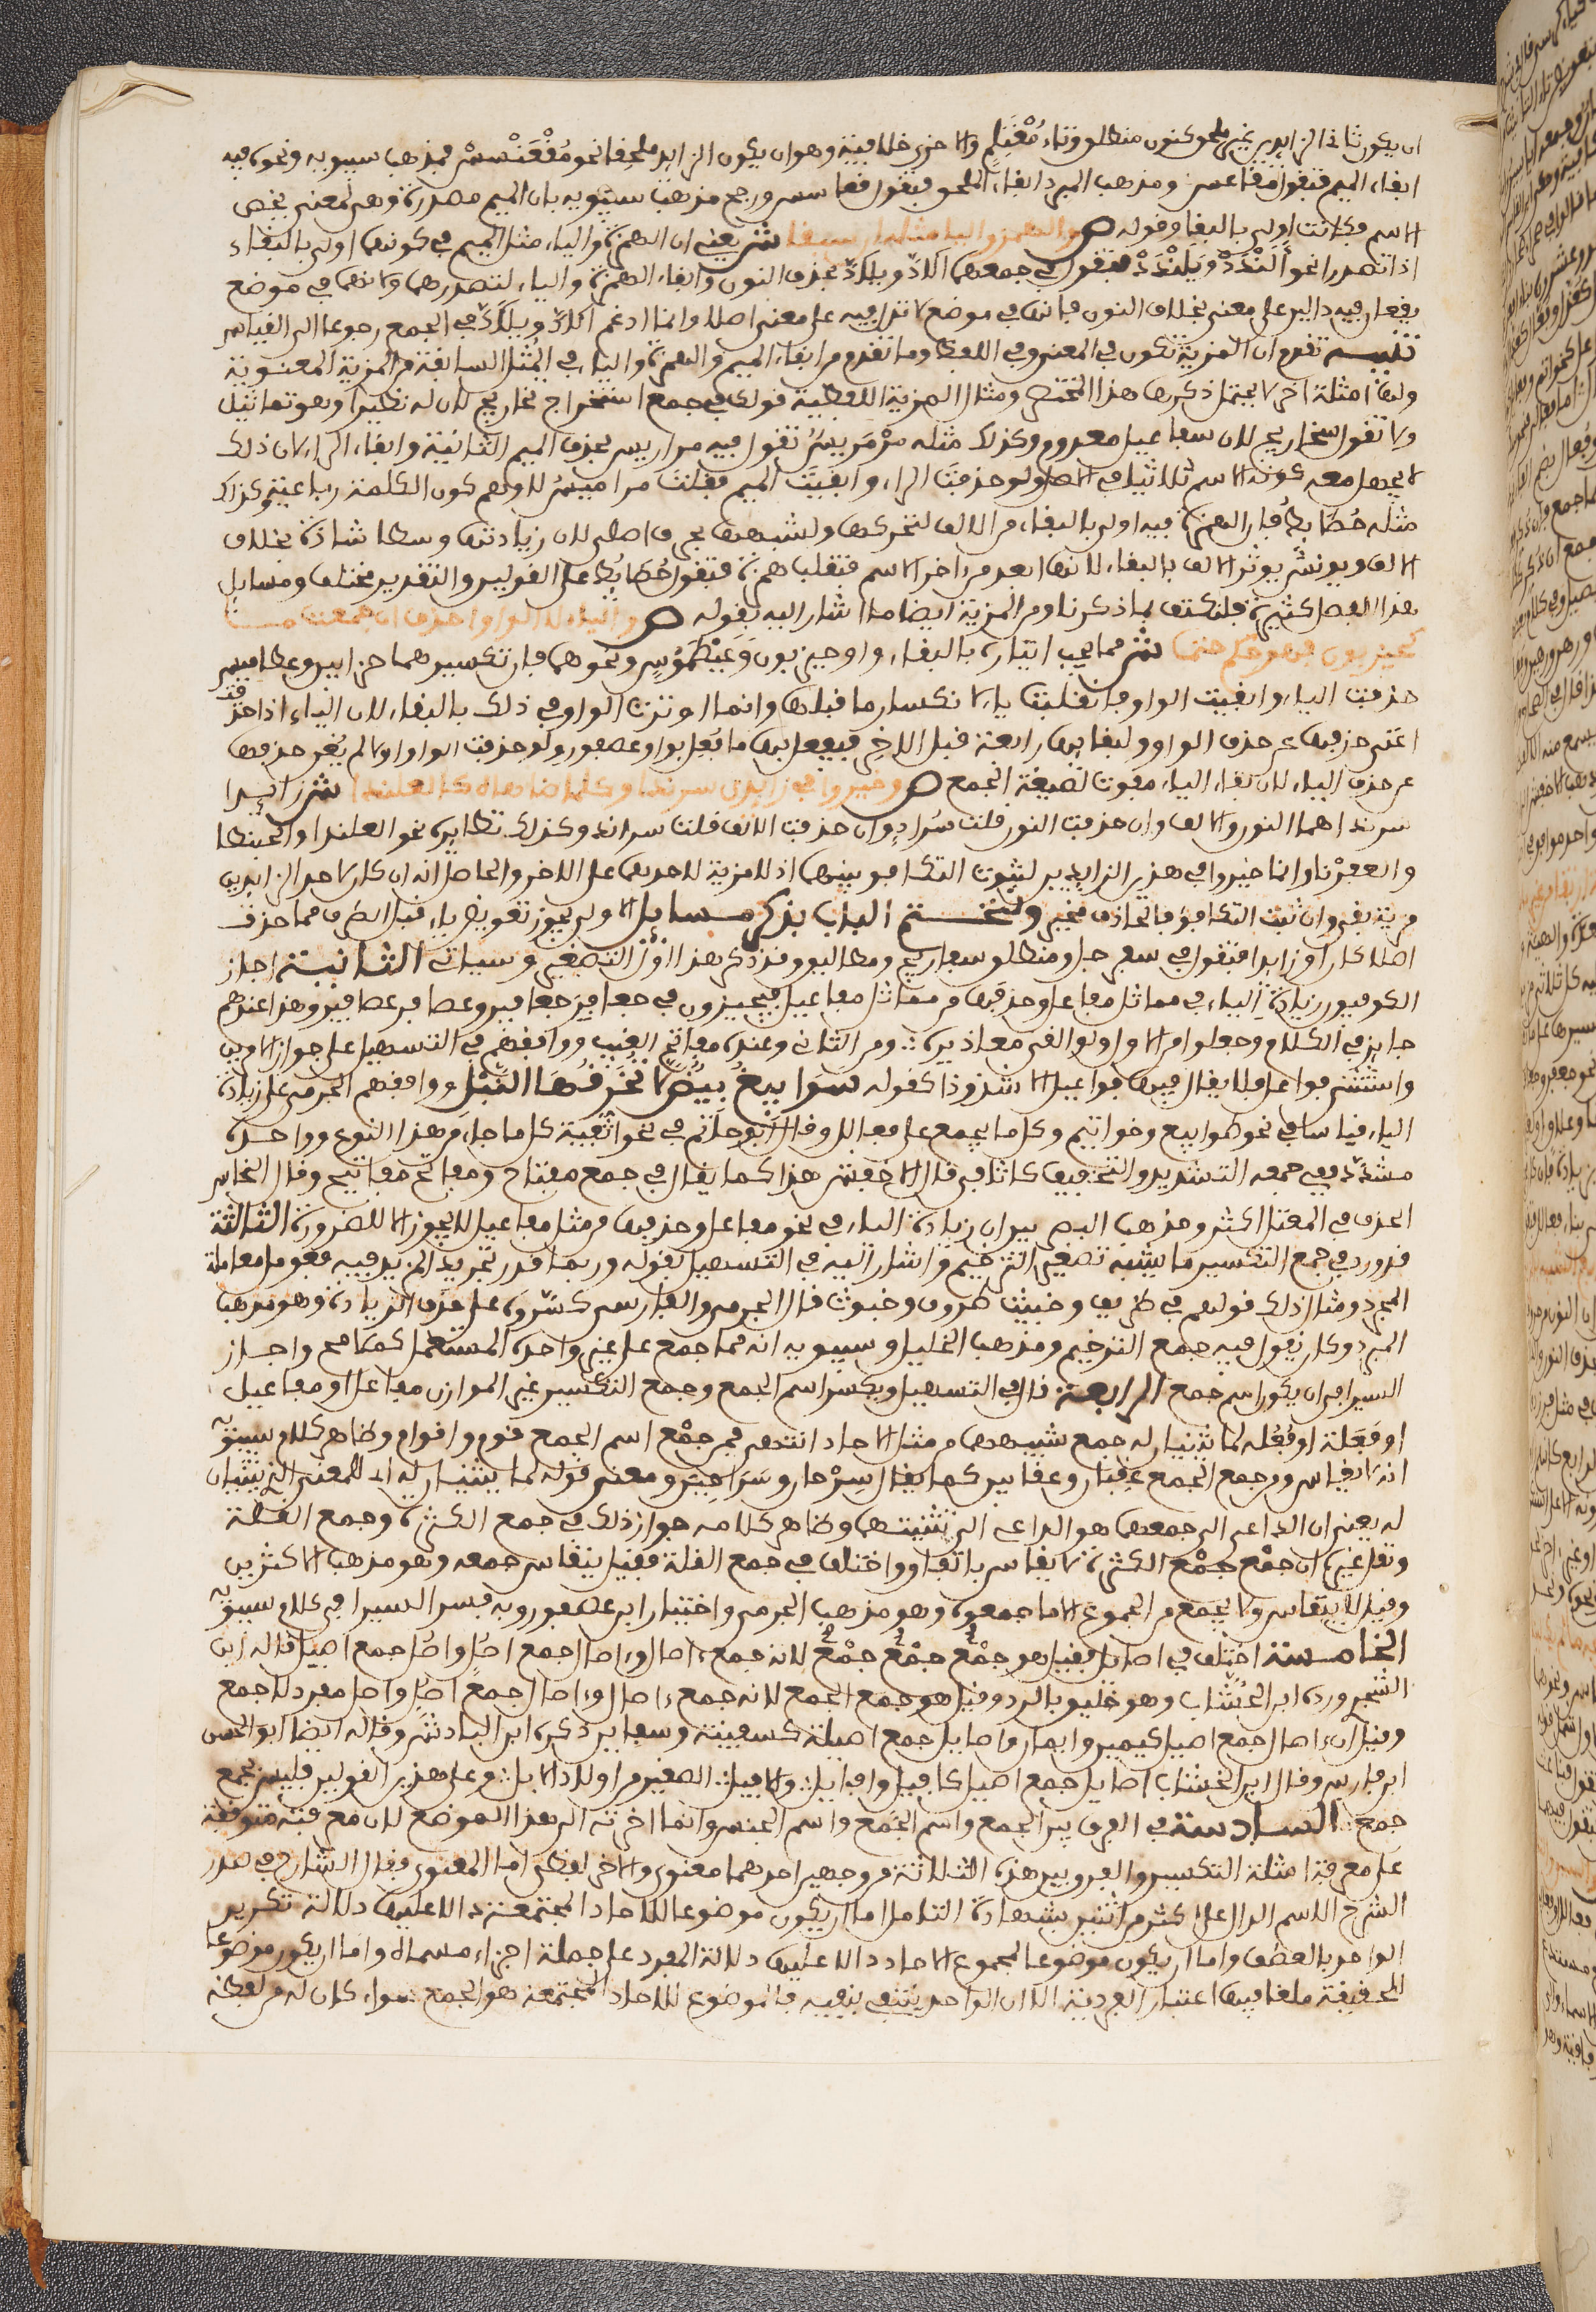 ان يكون ثاني الزايدين غير ملحق كنون منطلق وتاء مُغْتَلِم والاخرى خلافية وهو ان يكون الزايد ملحقا نحو مُقْعَنْسِس فمذهب سيبويه ونحوه فيه
ابقاء الميم فتقول مقاعس ومذهب المبرد ابقاء الملحق فتقول قعاسس ورجح مذهب سيبويه بان الميم مصدرة وهي لمعنى يخص
الاسم فكانت اولى بالبقا وقوله ص والهمز واليا مثله ان سبقا ش يعني ان الهمزة والياء مثل الميم في كونها اولى بالبقاء
اذا تصدرا نحو أَلَنْدَدْ ويَلَنْدَدْ فتقول في جمعهما الادّ ويلادّ بحذف النون وابقاء الهمزة والياء لتصدرهما ولانهما في موضع
يقعان فيه دالين على معنى بخلاف النون فانها في موضع لا تدل فيه على معنى اصلا وانما ادغم الادّ ويلادّ في الجمع رجوعا الى القياس
تنبيه تقدم ان المزية تكون في المعنى وفي اللفظ وما تقدم من ابقاء الميم والهمزة والياء في المُثل السابقة من المزية المعنوية
ولها امثلة اخر لا يحتمل ذكرها هذا المختصر ومثال المزية اللفظية قولك في جمع استخراج تخاريج لان له نظيرا وهو تماثيل
ولا تقول سخاريج لان سفاعيل معدوم وكذلك مثله مَرْمَريسٌ تقول فيه مراريس بحذف الميم الثانية وابقاء الراء لان ذلك
لا يجهل معه كون الاسم ثلاثيا في الاصل ولو حذفتَ الراء وابقيتَ الميم فقلت مراميسُ لاوهم كون الكلمة رباعية وكذلك
مثله حُطَائِطُ فان الهمزة فيه اولى بالبقاء من الالف لتحركها ولشبهها بحرف اصلي لان زيادتها وسطا شاذة بخلاف
الالف ويونس يوثر الالف بالبقاء لانها ابعد من اخر الاسم فتقلب همزة فتقول حطائط على القولين والتقدير مختلف ومسايل
هذا الفصل كثيرة فلنكتف بما ذكرنا ومن المزية ايضا ما اشار اليه بقوله ص والياء لا الواو احذف ان جمعت ما
كحيزبون فهو حكم حتما ش مما يجب ايثاره بالبقاء واو حيزبون وعَيْطَمُوسٍ ونحوهما فان تكسيرهما حزابين وعطاميس
حذفت الياء وابقيت الواو فانقلبت ياء لانكسار ما قبلها وانما اوثرت الواو في ذلك بالبقاء لان الياء اذا حذفت
اغنى حذفها عن حذف الواو ولبقايها رابعة قبل الاخِر فيفعل بها ما فُعِل بواو عصفور ولو حذفت الواو اولا لم يُغن حذفها
عن حذف الياء لان بقاء الياء مفوت لصيغة الجمع ص وخيروا في زايدي سرندا وكل ما ضاهاه كالعلندا ش زايدا
سرندا هما النون والالف وان حذفت النون قلت سُرادٍ وان حذفت الالف قلت سراند وكذلك نظايره نحو العلندا والحبنطا
والعفرْنا وانما خيروا في هذين الزايدين لثبوت التكافؤ بينهما اذ لا مزية لاحدهما على الاخر والحاصل انه ان كان لاحد الزايدين
مزية بقي وان ثبت التكافؤ فالحاذف مخير ولنختم الباب بذكر مسايل الاولى يجوز تعويض ياء قبل الطرف مما حذف
اصلا كان او زايدا فتقول في سفرجل ومنطلق سفاريج ومطاليق وقد ذكر هذا اوّلَ التصغير وسياتي الثانية اجاز
الكوفيون زيادة الياء في مماثل مفاعل وحذفها من مماثل مفاعيل فيجيزون في جعافر جعافير وعصافر عصافير وهذا عندهم
جايز في الكلام وجعلوا من الاول ولو القى معاذيره ومن الثاني وعنده مفاتح الغيب ووافقهم في التسهيل على جواز الامرين
واستثنى فواعل فلا يقال فيها فواعيل الا شذوذا كقوله سوابيغُ بيضٌ لا تُخرّقُها النَّبْل ووافقهم الجرمي على زيادة
الياء قياسا في نحو طوابيع وخواتيم وكل ما يجمع على فعالل وقال ابو حاتم في نحو اثفية كل ما جاء من هذا النوع وواحده
مشدد ففي جمعه التشديد والتخفيف كاثافي قال الاخفش هذا كما يقال في جمع مفتاح ومفاتح مفاتيح وقال النحاس
الحذف في المعتل اكثر ومذهب البصريين ان زيادة الياء في نحو مفاعل وحذفها من مثل مفاعيل لا يجوز الا للضرورة الثالثة
قد ورد في جمع التكسير ما يشبه تصغير الترخيم واشار اليه في التسهيل بقوله وربما قدر تجريد المزيد فيه فعومل معاملة
المجرد ومثال ذلك قولهم في ظريف وخبيث ظروف وخبوث قال الجرمي والفارسي كسّروه على حذف الزيادة وهو مذهب
المبرد وكان يقول فيه جمع الترخيم ومذهب الخليل وسيبويه انه مما جمع على غير واحده المستعمل كملامح واجاز
السيرافي ان يكون اسم جمع الرابعة قال في التسهيل ويكسّر اسم الجمع وجمع التكسير غير الموازن مفاعل او مفاعيل
او فَعَلة او فُعَلة لما يثنيان له جمع شبيههما من مثل الاحاد انتهى فمن جمْع اسم الجمع قوم واقوام وظاهر كلام سيبويه
انه لا يقاس ومن جمع الجمع عِقبان وعقابين كما يقال سِرْحان وسَرَاحِين ومعنى قوله لما يثنيان له اى للمعنى الذي يثنيان
له يعني ان الداعي الى جمعهما هو الداعي الى تثنيتهما وظاهر كلامه جواز ذلك في جمع الكثرة وجمع القلة
ونقل غيره ان جمْع جمْع الكثرة لا يقاس باتفاق واختلف في جمع القلة فقيل ينقاس جمعه وهو مذهب الاكثرين
وقيل لا ينقاس ولا يجمع من الجموع الا ما جمعوه وهو مذهب الجرمي واختيار ابن عصفور وبه فسر السيرافي كلام سيبويه
الخامسة اختلف في اصايل فقيل هو جمْع جمْع جمْع لانه جمع ءاصال وءاصال جمع اصُل واصُل جمع اصيل قاله ابن
الشجري ورده ابن الخشاب وهو خليق بالرد وقيل هو جمع الجمع لانه جمع ءاصال وءاصال جمع اصُل واصل مفرد لا جمع
وقيل ان ءاصال جمع اصيل كيمين وايمان واصايل جمع اصيلة كسفينة وسفاين ذكره ابن الباذش وقاله ايضا ابو الحسن
ابن فارس وقال ابن الخشاب اصايل جمع اصيل كافيل وافايل والافيل الصغير من اولاد الابل وعلى هذين القولين فليس بجمع
جمع السادسة في الفرق بين الجمع واسم الجَمع واسم الجنس وانما اخرته الى هذا الموضع لان معرفته متوقفة
على معرفة امثلة التكسير والفرق بين هذه الثلاثة من وجهين احدهما معنوي والاخر لفظي اما المعنوي فقال الشارح في صدر
الشرح الاسم الدال على اكثر من اثنين بشهادة التامل اما ان يكون موضوعا للاحاد المجتمعة دالا عليها دلالة تكرير
الواحد بالعطف واما ان يكون موضوعا لمجموع الاحاد دالا عليها دلالة المفرد على جملة اجزاء مسماه واما ان يكون موضوعا
للحقيقة ملغا فيها اعتبار الفردية الا ان الواحد ينتفي بنفيه فالموضوع للاحاد المجتمعة هو الجمع سواء كان له من لفظه